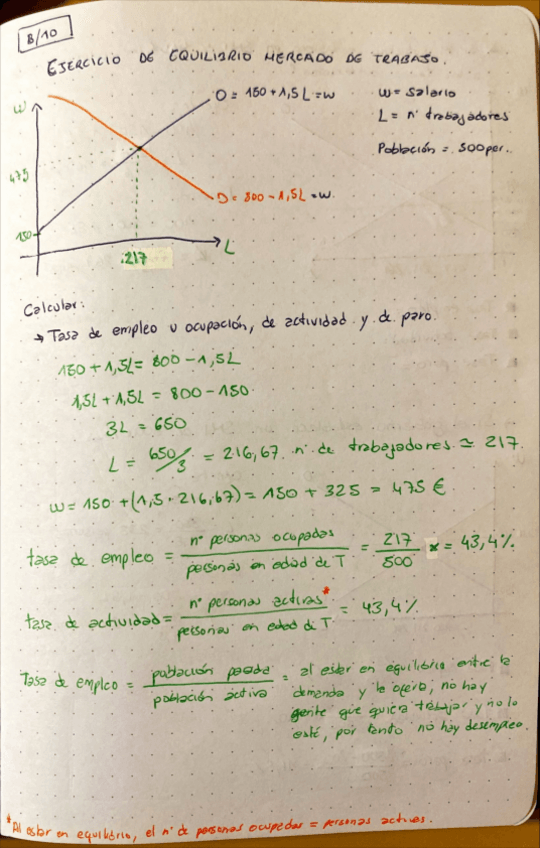 8/10
EJERCICIO DE EQUILIBRIO MERCADO DE TRABAJO.
W
O = 150 + 1,5L = w
w = salario
L = nº trabajadores
Población = 500 per.
475
D = 800 - 1,5L = w.
150
217
L
Calcular:
→ Tasa de empleo u ocupación, de actividad y de paro.
150 + 1,5L = 800 - 1,5L
1,5L + 1,5L = 800 - 150
3L = 650
L = 650/3 = 216,67 nº de trabajadores ≃ 217.
w = 150 + (1,5 · 216,67) = 150 + 325 = 475 €
tasa de empleo = nº personas ocupadas / personas en edad de T = 217 / 500 = 43,4%
tasa de actividad = nº personas activas* / personas en edad de T = 43,4%
Tasa de empleo = población parada / población activa = al estar en equilibrio entre la
demanda y la oferta, no hay
gente que quiera trabajar y no lo
esté, por tanto no hay desempleo.
*Al estar en equilibrio, el nº de personas ocupadas = personas activas.